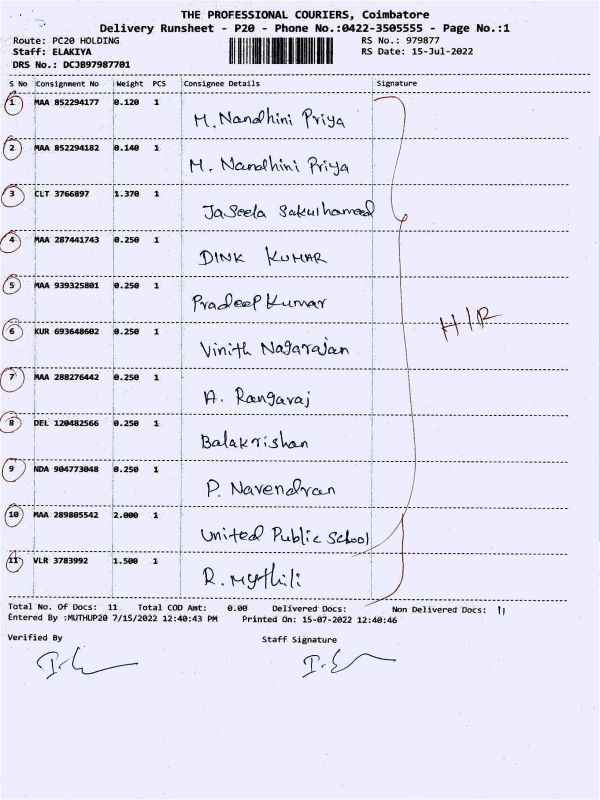 THE PROFESSIONAL COURIERS, Coimbatore
Delivery Runsheet - P20 - Phone No.:0422-3505555 - Page No.:1
Route: PC20 HOLDING RS No.: 979877
Staff: ELAKIYA RS Date: 15-Jul-2022
DRS No.: DCJB97987701
S No Consignment No Weight PCS Consignee Details Signature
1 MAA 852294177 0.120 1
M. Nandhini Priya
2 MAA 852294182 0.140 1
M. Nandhini Priya
3 CLT 3766897 1.370 1
JaSeela Sakulhameed
4 MAA 287441743 0.250 1
DINK KUMAR
5 MAA 939325801 0.250 1
Pradeep Kumar
6 KUR 693648602 0.250 1
Vinith Nagarajan
H/R
7 MAA 288276442 0.250 1
A. Rangaraj
8 DEL 120482566 0.250 1
Balakrishan
9 NDA 904773048 0.250 1
P. Navendran
10 MAA 289805542 2.000 1
United Public School
11 VLR 3783992 1.500 1
R. Mythili
Total No. Of Docs: 11 Total COD Amt: 0.00 Delivered Docs: Non Delivered Docs: 11
Entered By :MUTHUP20 7/15/2022 12:40:43 PM Printed On: 15-07-2022 12:40:46
Verified By Staff Signature